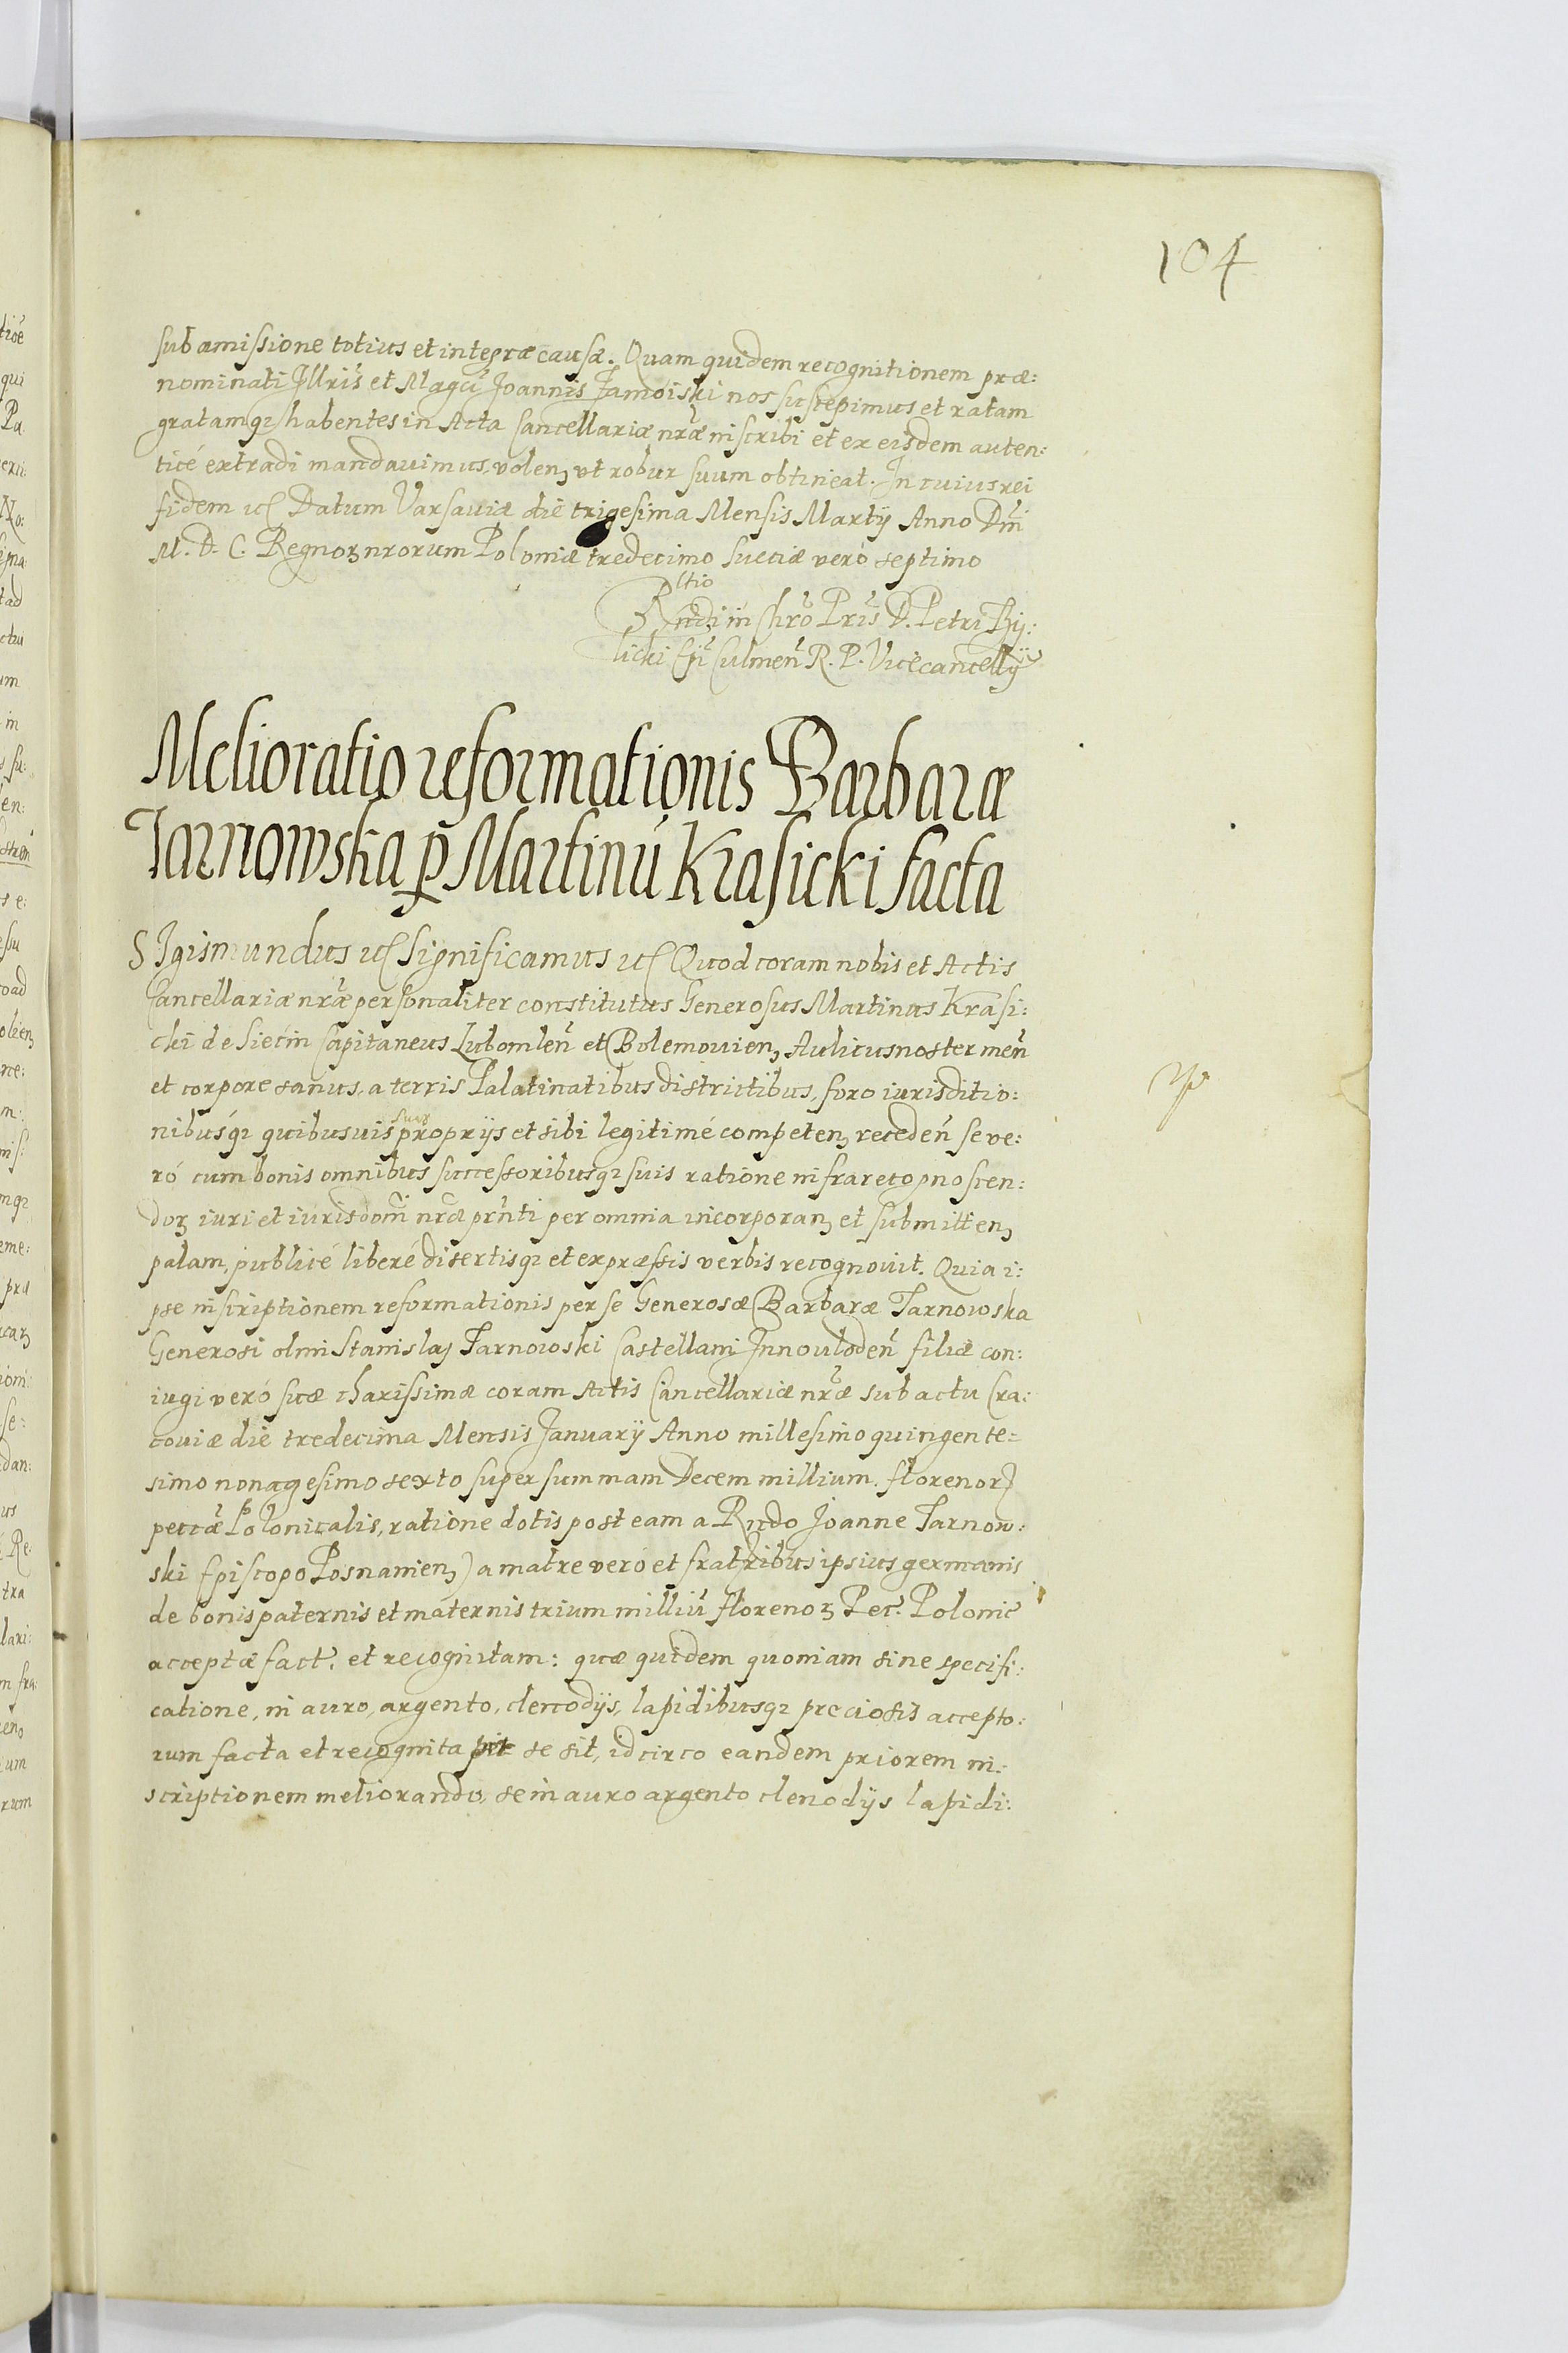 104
sub amissione totius et integræ causæ. Quam quidem recognitionem præ:
nominati Jllris et Magci Joannis Zamoiski nos suscepimus et ratam
gratamqȝ habentes in Acta Cancellariæ nræ inscribi et ex eisdem auten:
ticé extradi mandauimus, volenȝ vt robur suum obtineat. In cuius rei
fidem uc Datum Varsauiæ die trigesima Mensis Martij Anno Dni
M. D. C. Regnoȝ nrorum Poloniæ tredecimo Sueciæ veró septimo
Rltio
Rndi in Chro Pris D. Petri Tij:
licki Epi Culmen R. P. Vicecancellÿ
Melioratio reformationis Barbaræ
Tarnowska p Martinú Krasicki facta
SIgismundus uc Significamus uc Quod coram nobis et Actis
Cancellariæ nræ personaliter constitutus Generosus Martinus Krasi:
cki de Siecin Capitaneus Lubomlen et Bolemouienȝ Aulicus noster men
et corpore sanus, a terris Palatinatibus districtibus, foro iurisditio:
nibusqȝ quibusuis suis proprijs et sibi legitimé competenȝ receden se ve:
ró cum bonis omnibus successoribusqȝ suis ratione infrarecognoscen:
doȝ iuri et iurisdomi nræ prnti per omnia incorporanȝ et submittenȝ
palam, publicé liberé disertisqȝ et expræssis verbis recognouit. Quia i:
pse inscriptionem reformationis per se Generosæ Barbaræ Tarnowska
Generosi olmi Stanislaj Tarnowski Castellani Jnnoulоden filiæ con:
iugi veró suæ charissimæ coram Actis Cancellariæ nræ sub actu Cra:
couiæ die tredecima Mensis Januarÿ Anno millesimo quingente=
simo nonagesimo sexto super summam Decem millium florenorȝ
peccæ Polonicalis, ratione dotis post eam a Rndo Joanne Tarnow:
ski Episcopo Posnanienȝ) a matre veró et fratribus ipsius germanis
de bonis paternis et maternis trium milliú florenoȝ Pec. Polonic
acceptæ fact. et recognitam: quæ quidem quoniam sine specifi:
catione, in auro, argento, clenodijs, lapidibusqȝ preciosis accepto:
rum facta et recognita per se sit, idcirco eandem priorem in:
scriptionem meliorando, se in auro argento clenodijs lapidi: